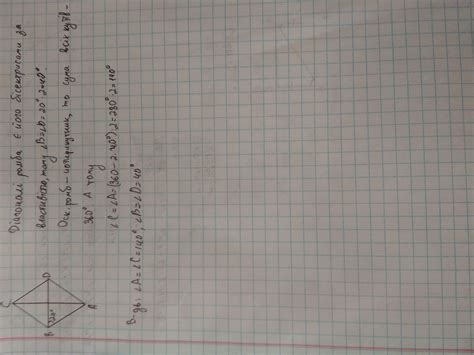 C
B
D
A
20°
Діагоналі ромба є його бісектрисами за
властивістю, тому ∠B=∠D=20°·2=40°.
Оск. ромб – чотирикутник, то сума всіх кутів –
360°. А тому
∠C=∠A=(360-2·40°):2=280°:2=140°
В-дь: ∠A=∠C=140°; ∠B=∠D=40°